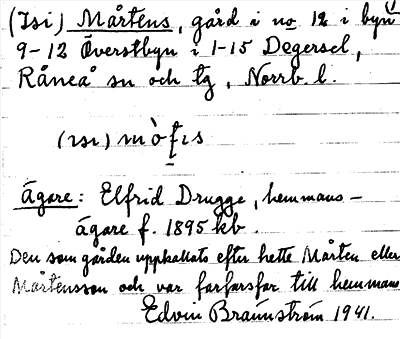 (Isi) Mårtens, gård i no 12 i byn
9-12 Överstbyn i 1-15 Degersel,
Råneå sn och tg, Norrb. l.
(ısı) mò
Ägare: Elfrid Drugge, hemmans-
ägare f. 1895 kb.
Den som gården uppkallats efter hette Mårten eller
Mårtensson och var farfarsfar till hemmans
Edvin Braunström 1941.